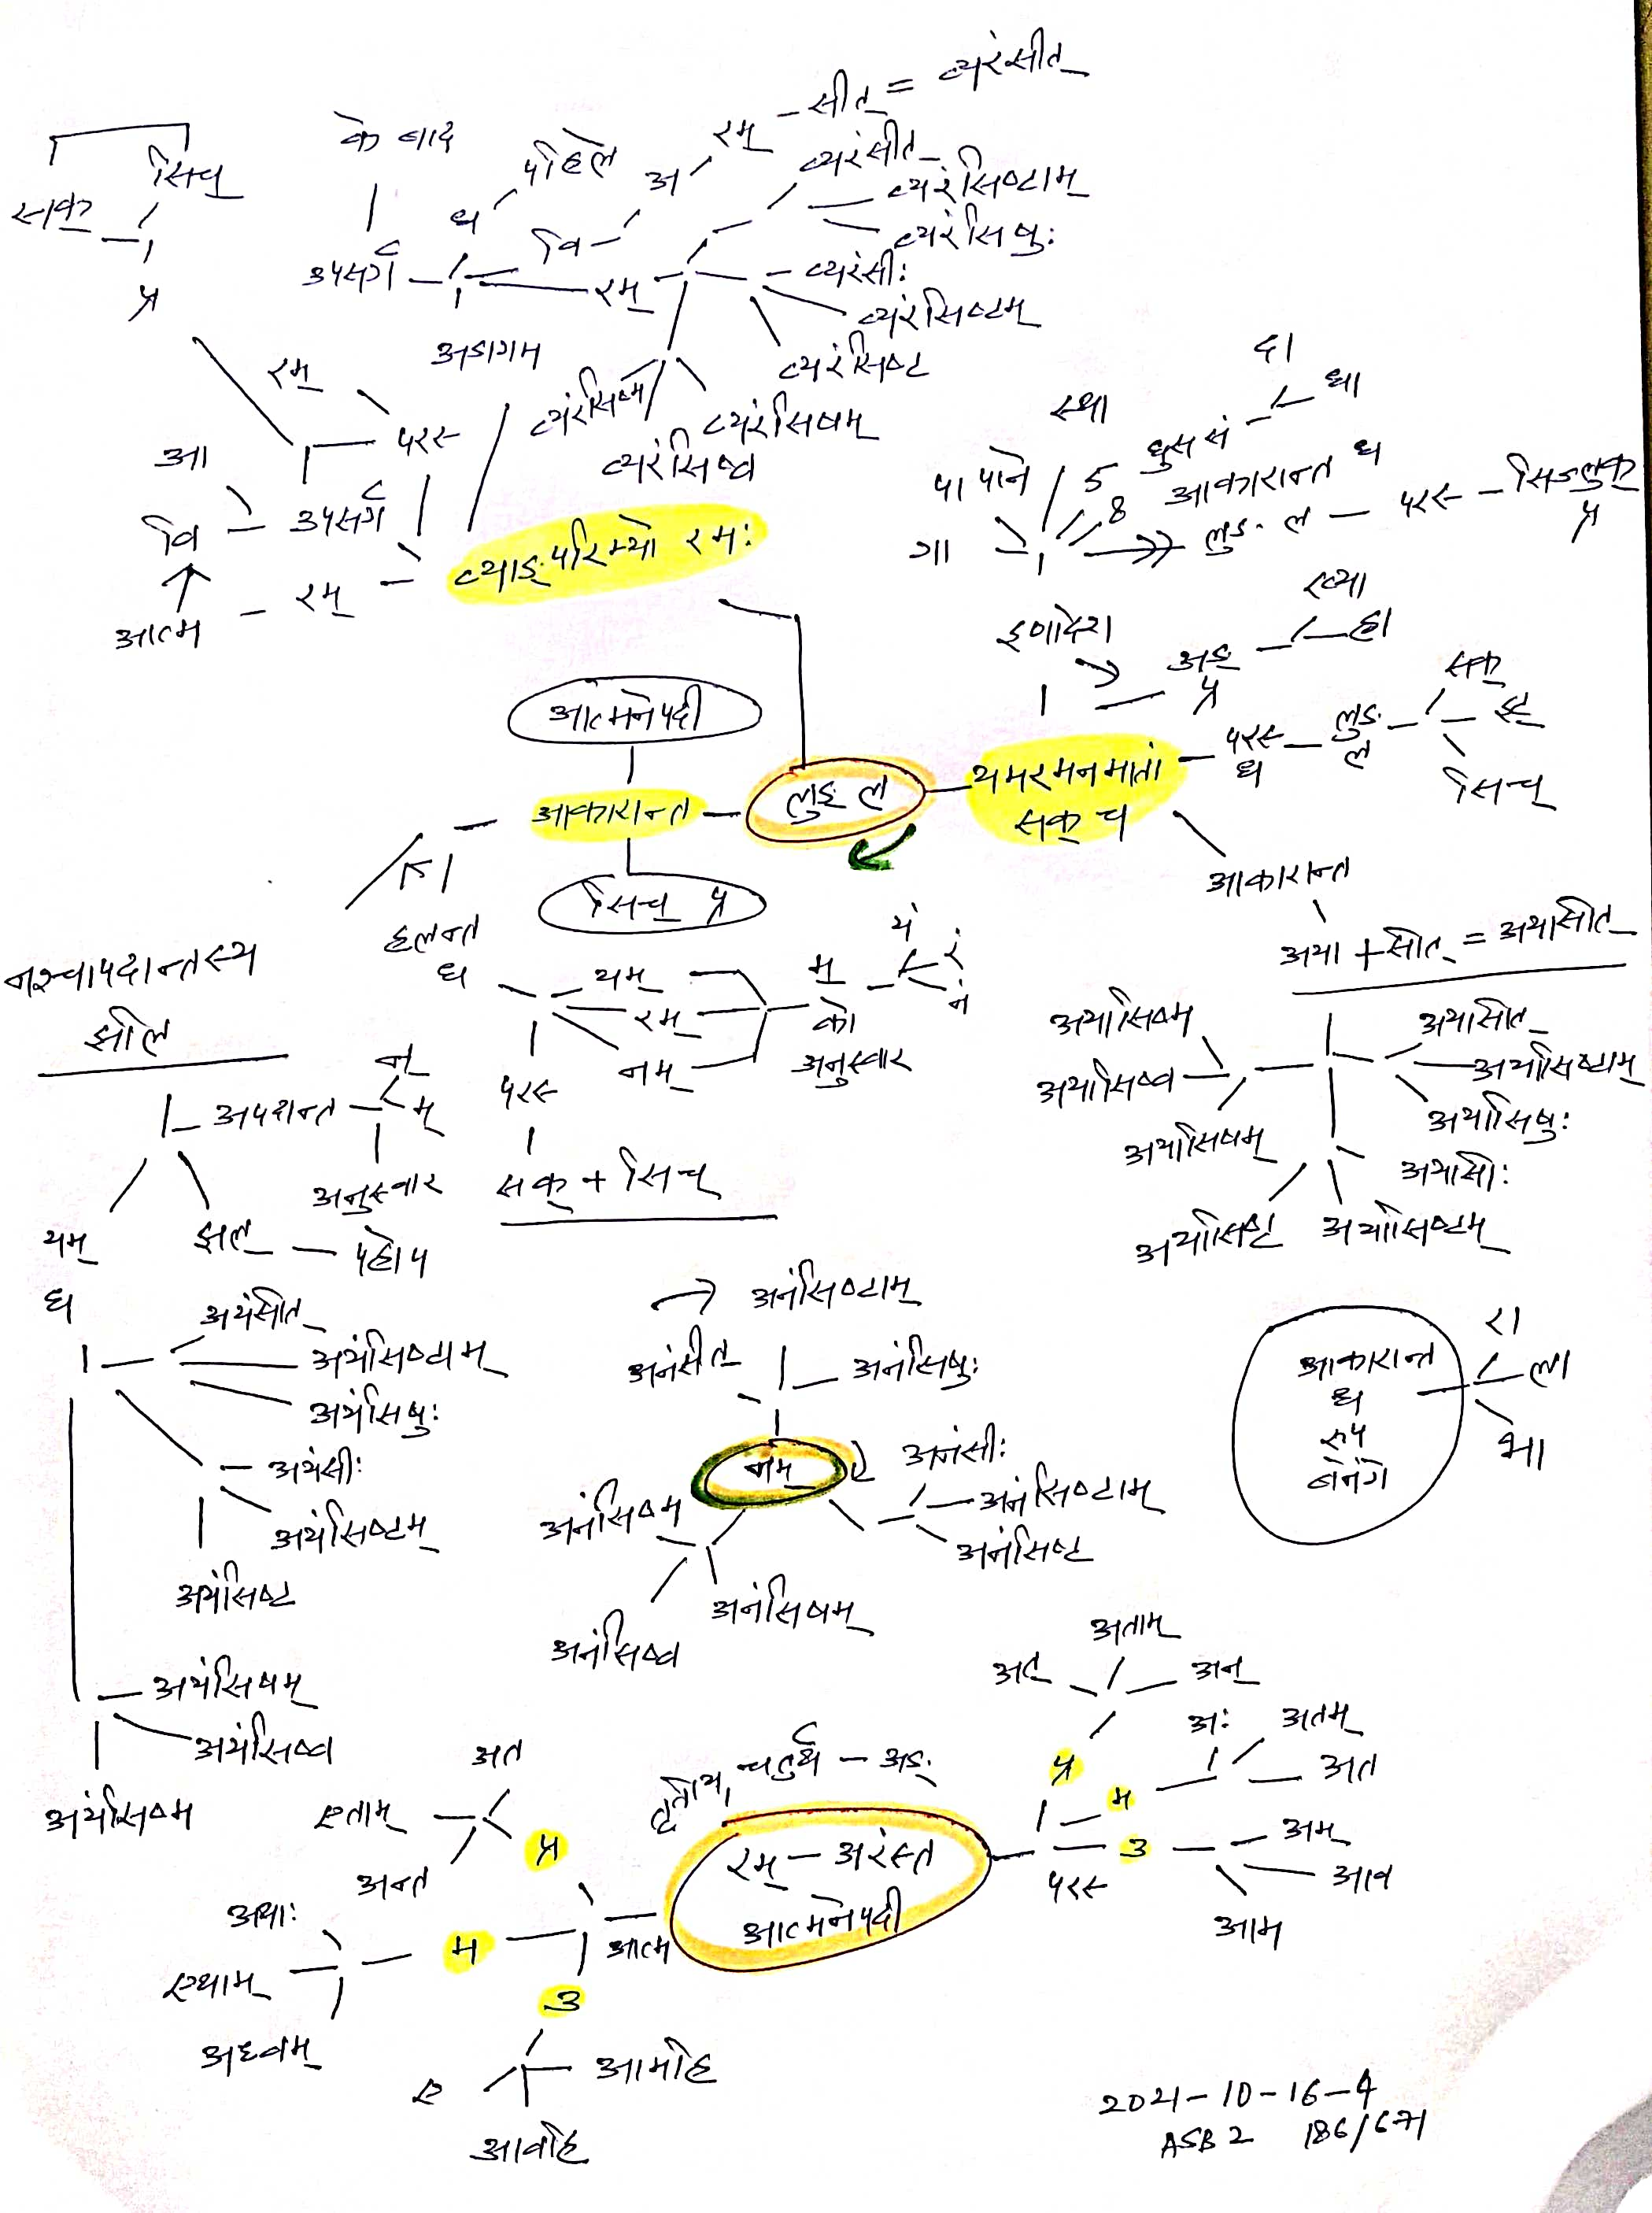 के बाद
पहिले
अ
रम्
- सीत् = व्यरंसीत्
सिच्
सक्
प्र
उपसर्ग
ध
वि
रम्
व्यरंसीत्
व्यरंसिष्टाम्
व्यरंसिषुः
व्यरंसीः
व्यरंसिष्टम्
व्यरंसिष्ट
व्यरंसिषम्
व्यरंसिष्व
व्यंरसिष्म
अडागम
रम्
परस्
आ
वि
उपसर्ग
आत्म - रम्
व्याङ्परिभ्यो रमः
स्था
दा
धा
पा पाने
5
घुस सं
8
आकारान्त ध
गा
लुङ्. ल - परस् - सिज्लुक्
प्र
इणादेश
अङ्
प्र
ख्या
हा
आत्मनेपदी
आकारान्त
लुङ् ल
सिच् प्र
यमरमनमातां
सक् च
परस्
ध
लुङ्.
ल
सक्
इट्
सिच्
आकारान्त
अया + सीत् = अयासीत्
अयासीत्
अयासिष्टाम्
अयासिषुः
अयासीः
अयासिष्टम्
अयासिष्ट
अयासिषम्
अयासिष्व
अयासिष्म
हलन्त
ध
यम्
रम्
नम्
म्
को
अनुस्वार
यं
रं
नं
परस्
सक् + सिच्
नश्चापदान्तस्य
झलि
अपदान्त
न्
म्
अनुस्वार
यम्
ध
झल्
अयंसीत्
अयंसिष्टाम्
अयंसिषुः
अयंसीः
अयंसिष्टम्
अयंसिष्ट
अयंसिषम्
अयंसिष्व
अयंसिष्म
अनंसिष्टाम्
अनंसीत्
अनंसिषुः
नम्
अनंसीः
अनंसिष्टाम्
अनंसिष्ट
अनंसिषम्
अनंसिष्व
अनंसिष्म
आकारान्त
ध
रूप
बनेंगे
रा
ला
भा
तृतीय, चतुर्थ - अङ्.
रम् - अरंस्त
आत्मनेपदी
परस्
प्र
अत्
अताम्
अन्
म
अः
अतम्
अत
उ
अम्
आव
आम
आत्म
प्र
अत
एताम्
अन्त
म
अथाः
एथाम्
अध्वम्
उ
ए
आवहि
आमहि
2021-10-16-4
ASB 2 186/671